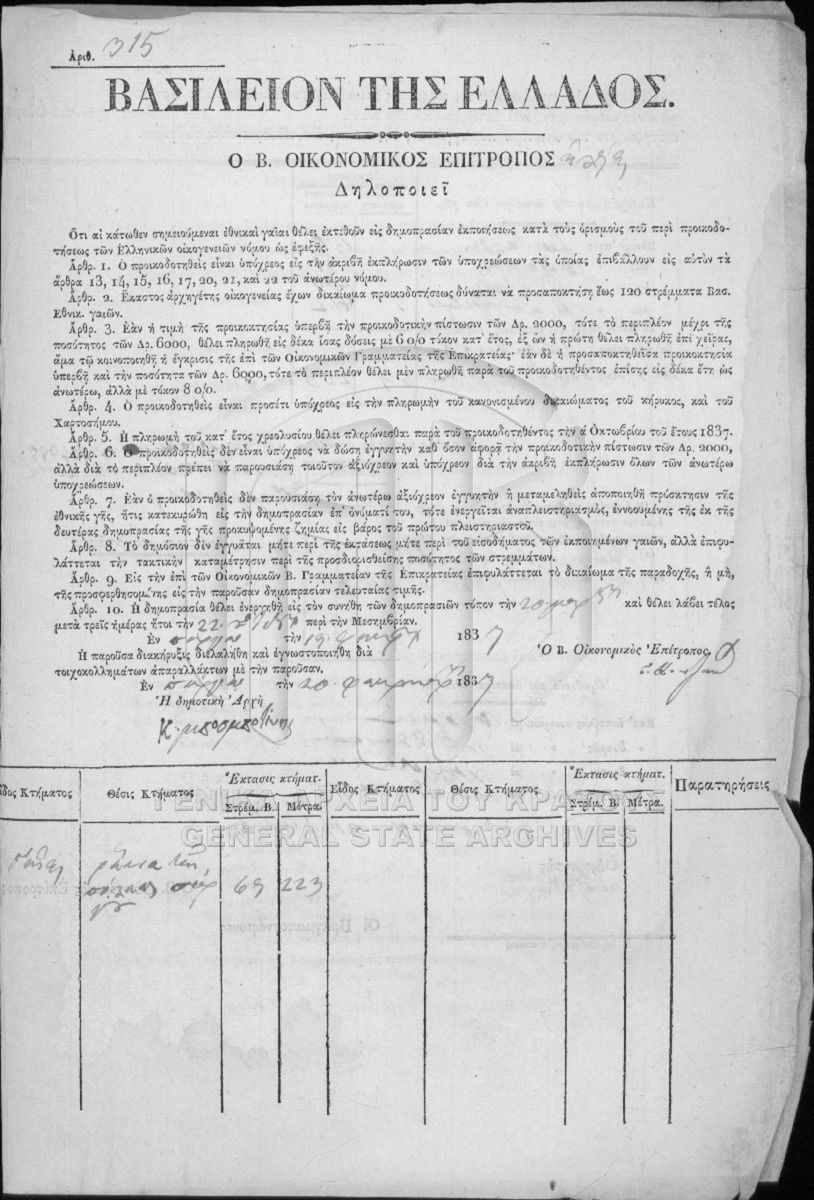 Ἀριθ. 315
ΒΑΣΙΛΕΙΟΝ ΤΗΣ ΕΛΛΑΔΟΣ.
Ο Β. ΟΙΚΟΝΟΜΙΚΟΣ ΕΠΙΤΡΟΠΟΣ
Δηλοποιεῖ
Ὅτι αἱ κάτωθεν σημειούμεναι ἐθνικαὶ γαῖαι θέλει ἐκτεθοῦν εἰς δημοπρασίαν ἐκποιήσεως κατὰ τοὺς ὁρισμοὺς τοῦ περὶ προικοδο-
τήσεως τῶν Ἑλληνικῶν οἰκογενειῶν νόμου ὡς ἐφεξῆς.
Ἄρθρ. 1. Ὁ προικοδοτηθεὶς εἶναι ὑπόχρεος εἰς τὴν ἀκριβῆ ἐκπλήρωσιν τῶν ὑποχρεώσεων τὰς ὁποίας ἐπιβάλλουν εἰς αὐτὸν τὰ
ἄρθρα 13, 14, 15, 16, 17, 20, 21, καὶ 22 τοῦ ἀνωτέρου νόμου.
Ἄρθρ. 2. Ἕκαστος ἀρχηγέτης οἰκογενείας ἔχων δικαίωμα προικοδοτήσεως δύναται νὰ προσαποκτήσῃ ἕως 120 στρέμματα Βασ.
Ἐθνικ. γαιῶν.
Ἄρθρ. 3. Ἐὰν ἡ τιμὴ τῆς προικοκτησίας ὑπερβῇ τὴν προικοδοτικὴν πίστωσιν τῶν Δρ. 2000, τότε τὸ περιπλέον μέχρι τῆς
ποσότητος τῶν Δρ. 6000, θέλει πληρωθῆ εἰς δέκα ἴσας δόσεις μὲ 6 0/0 τόκον κατ' ἔτος, ἐξ ὧν ἡ πρώτη θέλει πληρωθῆ ἐπὶ χεῖρας,
ἅμα τῷ κοινοποιηθῇ ἡ ἔγκρισις τῆς ἐπὶ τῶν Οἰκονομικῶν Γραμματείας τῆς Ἐπικρατείας· ἐὰν δὲ ἡ προσαποκτηθεῖσα προικοκτησία
ὑπερβῇ καὶ τὴν ποσότητα τῶν Δρ. 6000, τότε τὸ περιπλέον θέλει μὲν πληρωθῆ παρὰ τοῦ προικοδοτηθέντος ἐπίσης εἰς δέκα ἔτη ὡς
ἀνωτέρω, ἀλλὰ μὲ τόκον 8 0/0.
Ἄρθρ. 4. Ὁ προικοδοτηθεὶς εἶναι προσέτι ὑπόχρεος εἰς τὴν πληρωμὴν τοῦ κανονισμένου δικαιώματος τοῦ κήρυκος, καὶ τοῦ
Χαρτοσήμου.
Ἄρθρ. 5. Ἡ πληρωμὴ τοῦ κατ' ἔτος χρεολυσίου θέλει πληρώνεσθαι παρὰ τοῦ προικοδοτηθέντος τὴν ά Ὀκτωβρίου τοῦ ἔτους 1837.
Ἄρθρ. 6. Ὁ προικοδοτηθεὶς δὲν εἶναι ὑπόχρεος νὰ δώσῃ ἐγγυητὴν καθ' ὅσον ἀφορᾷ τὴν προικοδοτικὴν πίστωσιν τῶν Δρ. 2000,
ἀλλὰ διὰ τὸ περιπλέον πρέπει νὰ παρουσιάσῃ τοιοῦτον ἀξιόχρεον καὶ ὑπόχρεον διὰ τὴν ἀκριβῆ ἐκπλήρωσιν ὅλων τῶν ἀνωτέρω
ὑποχρεώσεων.
Ἄρθρ. 7. Ἐὰν ὁ προικοδοτηθεὶς δὲν παρουσιάσῃ τὸν ἀνωτέρω ἀξιόχρεον ἐγγυητὴν ἢ μεταμεληθεὶς ἀποποιηθῇ πρόσκτησιν τῆς
ἐθνικῆς γῆς, ἥτις κατεκυρώθη εἰς τὴν δημοπρασίαν ἐπ' ὀνόματί του, τότε ἐνεργεῖται ἀναπλειστηριασμὸς, ἐννοουμένης τῆς ἐκ τῆς
δευτέρας δημοπρασίας τῆς γῆς προκυψομένης ζημίας εἰς βάρος τοῦ πρώτου πλειστηριαστοῦ.
Ἄρθρ. 8. Τὸ δημόσιον δὲν ἐγγυᾶται μήτε περὶ τῆς ἐκτάσεως μήτε περὶ τοῦ εἰσοδήματος τῶν ἐκποιημένων γαιῶν, ἀλλὰ ἐπιφυ-
λάττεται τὴν τακτικὴν καταμέτρησιν περὶ τῆς προσδιορισθείσης ποσότητος τῶν στρεμμάτων.
Ἄρθρ. 9. Εἰς τὴν ἐπὶ τῶν Οἰκονομικῶν Β. Γραμματείαν τῆς Ἐπικρατείας ἐπιφυλάττεται τὸ δικαίωμα τῆς παραδοχῆς, ἢ μὴ,
τῆς προσφερθησομένης εἰς τὴν παροῦσαν δημοπρασίαν τελευταίας τιμῆς.
Ἄρθρ. 10. Ἡ δημοπρασία θέλει ἐνεργηθῆ εἰς τὸν συνήθη τῶν δημοπρασιῶν τόπον τὴν 20 καὶ θέλει λάβει τέλος
μετὰ τρεῖς ἡμέρας ἤτοι τὴν 22 περὶ τὴν Μεσημβρίαν.
Ἐν τὴν 19 1837
Ἡ παροῦσα διακήρυξις διελαλήθη καὶ ἐγνωστοποιήθη διὰ
τοιχοκολλημάτων ἀπαραλλάκτων μὲ τὴν παροῦσαν.
Ὁ Β. Οἰκονομικὸς Ἐπίτροπος
Ἐν τὴν 20 1837
Ἡ δημοτικὴ Ἀρχὴ
Εἶδος Κτήματος Θέσις Κτήματος Ἔκτασις κτήματ. Εἶδος Κτήματος Θέσις Κτήματος Ἔκτασις κτήματ. Παρατηρήσεις
Στρέμ. Β. Μέτρα. Στρέμ. Β. Μέτρα.
ΓΕΝΙΚΑ ΑΡΧΕΙΑ ΤΟΥ ΚΡΑΤΟΥΣ
GENERAL STATE ARCHIVES
223